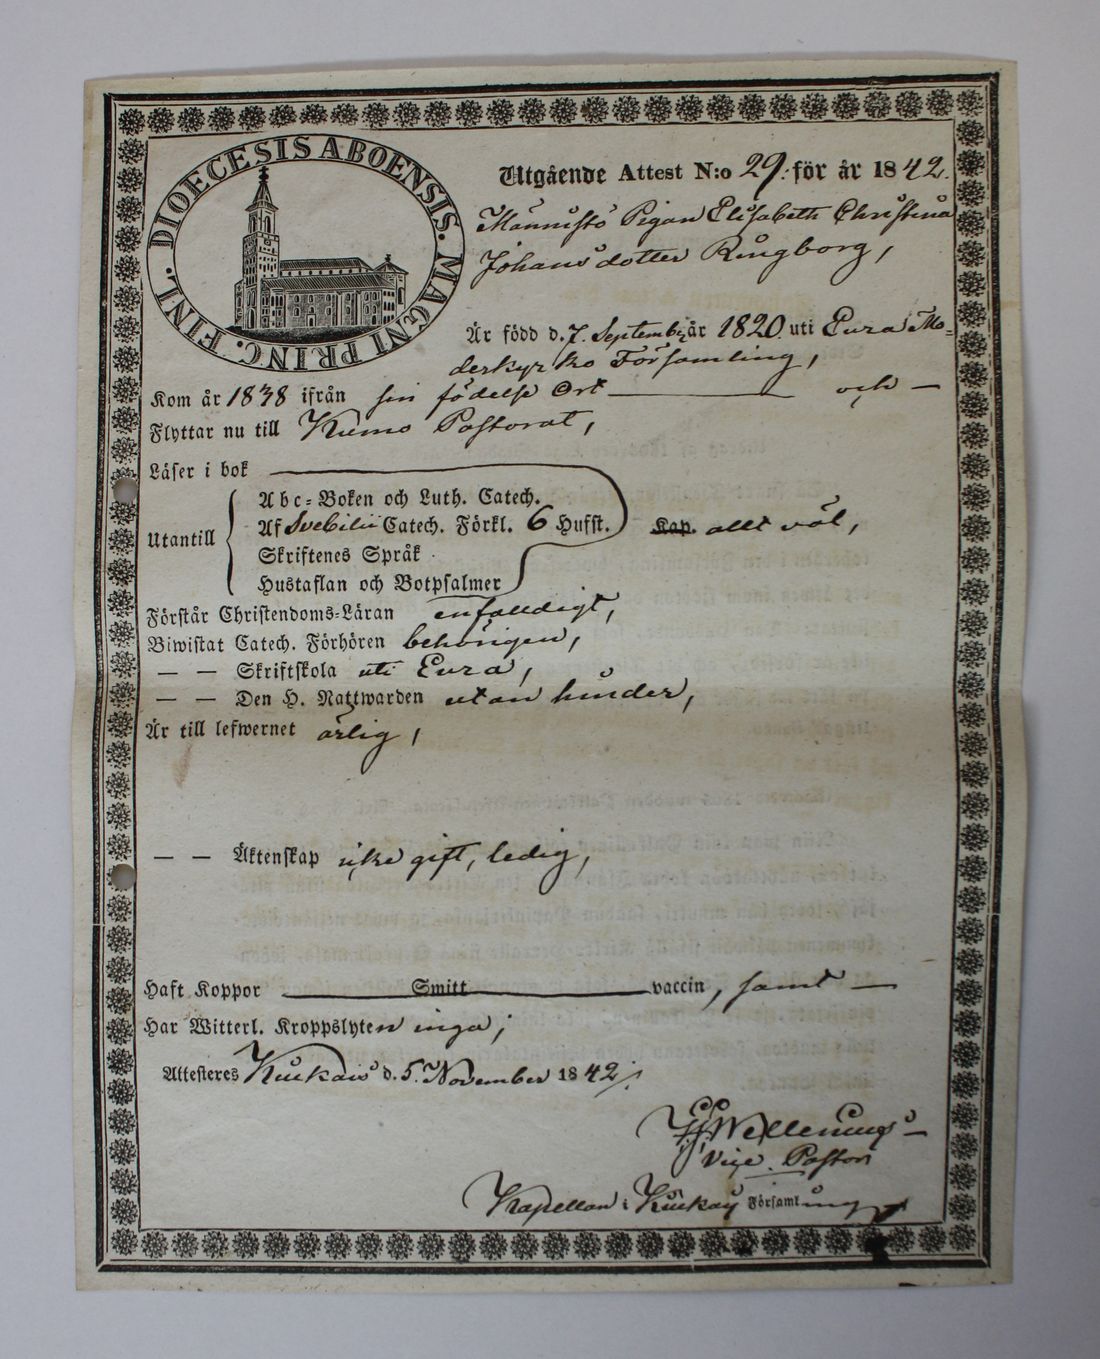 DIOECESIS ABOENSIS. MAGNI PRINC. FINL.
Utgående Attest N:o 29. för år 1842.
Männistö Pigan Elisabeth Christina
Johans dotter Ringborg,
Är född d. 7. Septemb. år 1820. uti Eura Mo-
derkyrko Församling,
Kom år 1838 ifrån sin födelse Ort och
Flyttar nu till Kumo Pastorat,
Läser i bok
Abc-Boken och Luth. Catech.
Utantill Af Svebilii Catech. Förkl. 6 Hufst. Kap. allt väl,
Skriftenes Språk
Hustaflan och Botpsalmer
Förstår Christendoms-Läran enfalldigt,
Biwistat Catech. Förhören behörigen,
— — Skriftskola uti Eura,
— — Den H. Nattwarden utan hinder,
Är till lefwernet ärlig,
— — Äktenskap icke gift, ledig,
Haft Koppor Smitt vaccin, samt —
Har Witterl. Kroppslyten inga;
Attesteres Kiukais d. 5. November 1842.
Wellenius
Vice Pastor
Kapellan i Kiukais Församling